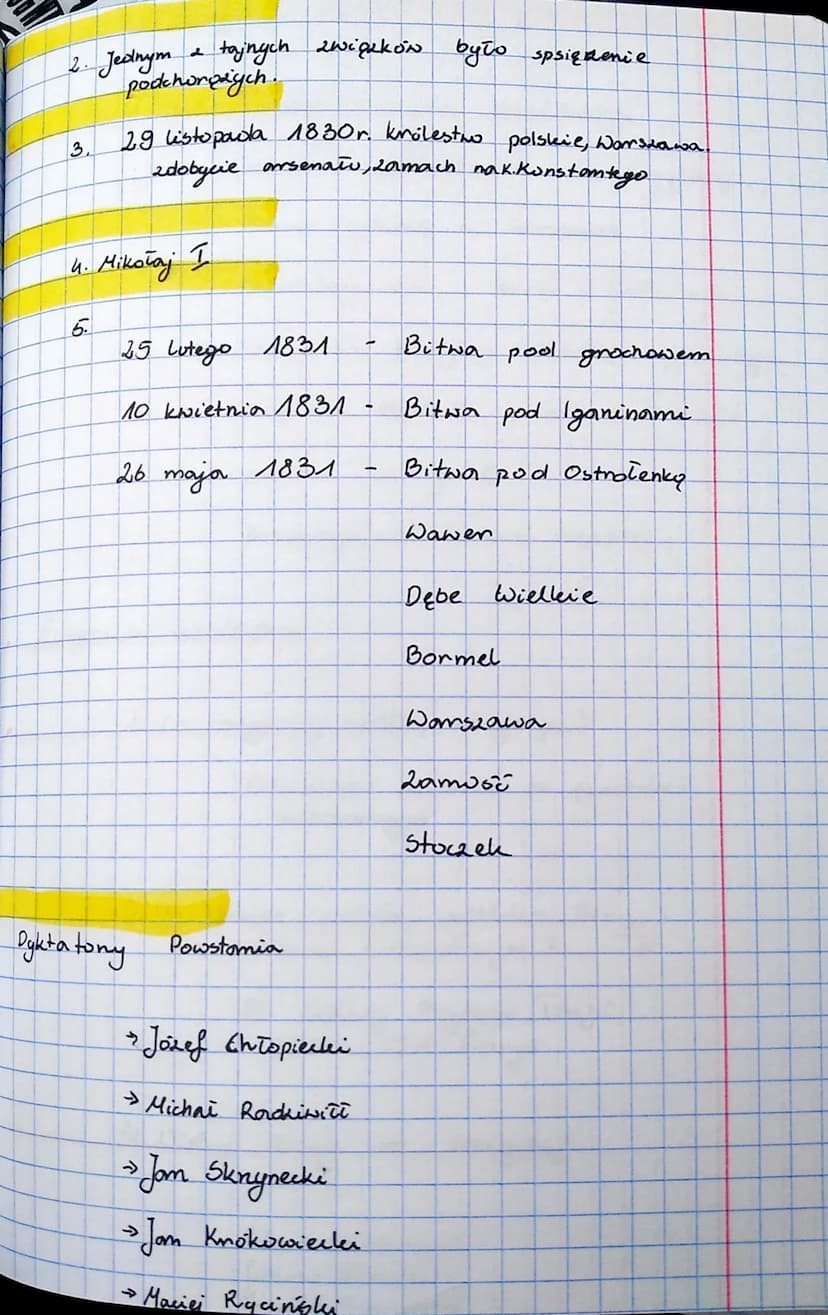 2. Jednym z tajnych związków było spsiężenie
podchorążych.
3. 29 listopada 1830r. królestwo polskie, Warszawa.
zdobycie arsenału, zamach na k. Konstantego
4. Mikołaj I
5.
25 lutego 1831 - Bitwa pod grochowem
10 kwietnia 1831 - Bitwa pod Iganinami
26 maja 1831 - Bitwa pod Ostrołenką
Wawer
Dębe Wielkie
Bormel
Warszawa
Zamość
Stoczek
Dyktatorzy Powstania
→ Józef Chłopiecki
→ Michał Radziwiłł
→ Jan Skrzynecki
→ Jan Krókowiecki
→ Maciej Ryciński